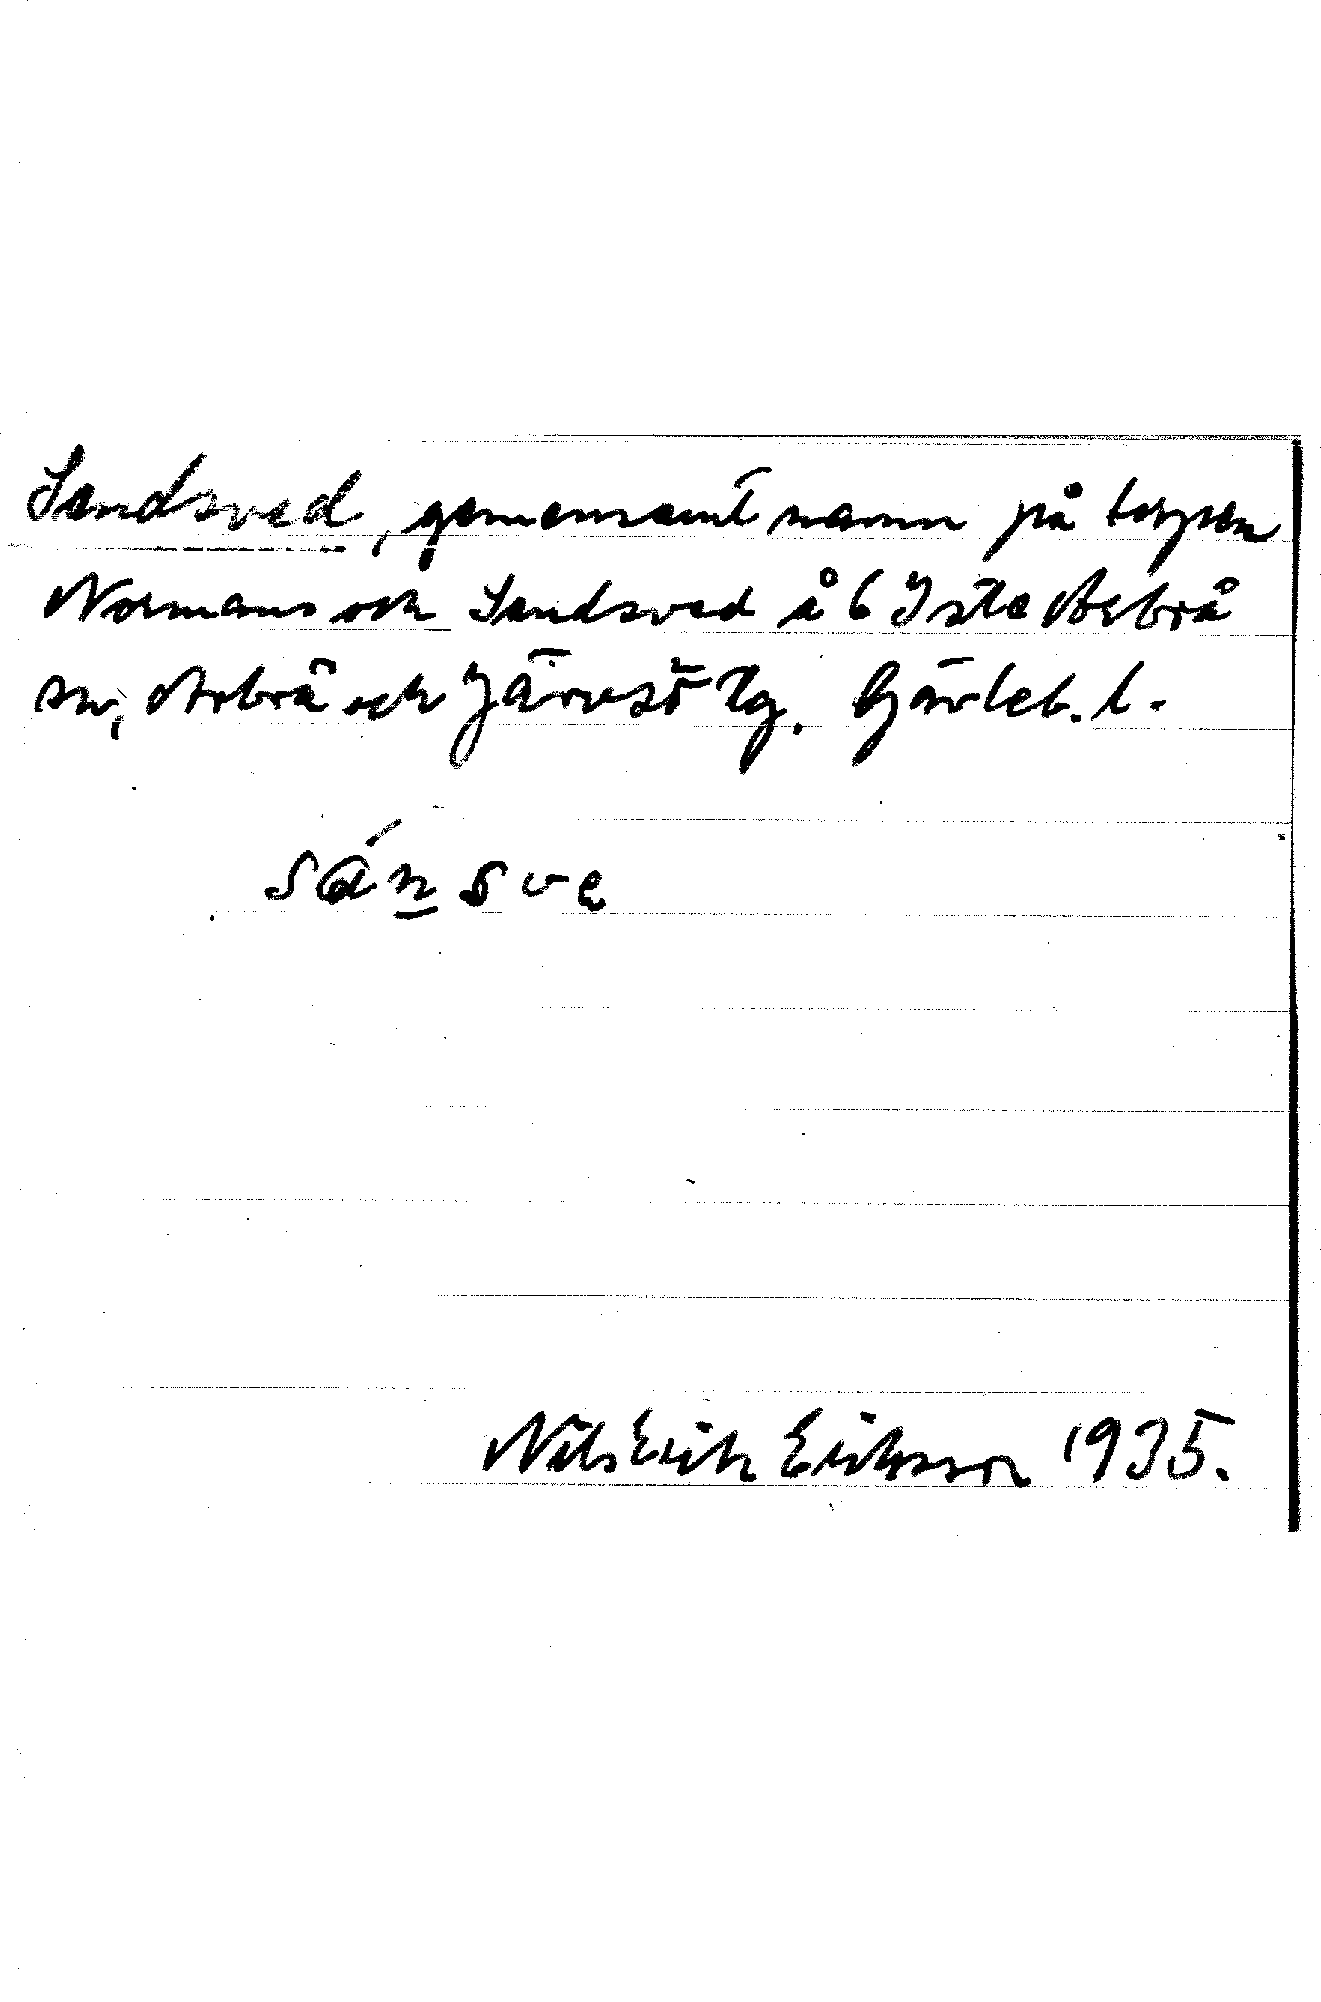 Sandsved, gemensamt namn på torpen
Normans och Sandsved å 6 Iste Arbrå
sn, Arbrå och Järvsö tg. Gävleb. l.
sánsve
Nils Erik Eriksson 1935.